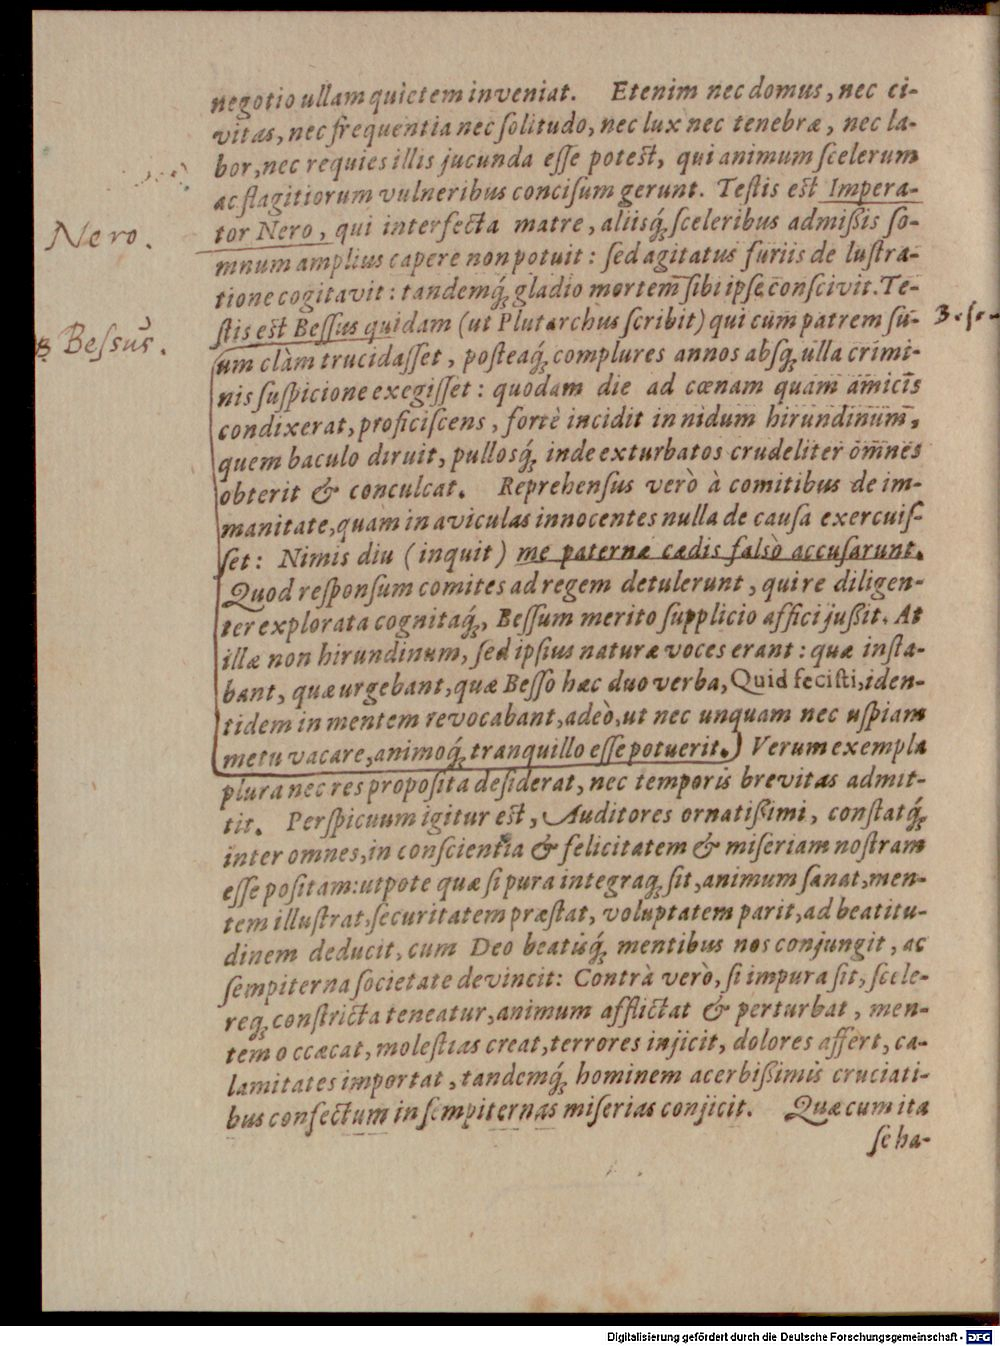 negotio ullam quietem inveniat. Etenim nec domus, nec ci-
vitas, nec frequentia nec ſolitudo, nec lux nec tenebræ, nec la-
bor, nec requies illis jucunda eſſe poteſt, qui animum ſcelerum
ac flagitiorum vulneribus conciſum gerunt. Teſtis eſt Impera-
tor Nero, qui interfecta matre, aliisq́; ſceleribus admißis ſo-
Nero.
mnum amplius capere non potuit: ſed agitatus furiis de luſtra-
tione cogitavit: tandemq́; gladio mortem ſibi ipſe conſcivit. Te-
ſtis eſt Beſſus quidam (ut Plutarchus ſcribit) qui cum patrem ſu-
Beſsus.
um clàm trucidaſſet, poſteaq́; complures annos abſq; ulla crimi-
nis ſuſpicione exegiſſet: quodam die ad cœnam quam amicis
condixerat, proficiſcens, fortè incidit in nidum hirundinum,
quem baculo diruit, pullosq́; inde exturbatos crudeliter omnes
obterit & conculcat. Reprehenſus verò à comitibus de im-
manitate, quam in aviculas innocentes nulla de cauſa exercuiſ-
ſet: Nimis diu (inquit) me paternæ cædis falsò accuſarunt.
Quod reſponſum comites ad regem detulerunt, qui re diligen-
ter explorata cognitaq́;, Beſſum merito ſupplicio affici jußit. At
illæ non hirundinum, ſed ipſius naturæ voces erant: quæ inſta-
bant, quæ urgebant, quæ Beſſo hæc duo verba, Quid feciſti, iden-
tidem in mentem revocabant, adeò, ut nec unquam nec uſpiam
metu vacare, animoq́; tranquillo eſſe potuerit.) Verum exempla
plura nec res propoſita deſiderat, nec temporis brevitas admit-
tit. Perſpicuum igitur eſt, Auditores ornatißimi, conſtatq́;
inter omnes, in conſcientia & felicitatem & miſeriam noſtram
eſſe poſitam: utpote quæ ſi pura integraq; ſit, animum ſanat, men-
tem illuſtrat, ſecuritatem præſtat, voluptatem parit, ad beatitu-
dinem deducit, cum Deo beatisq́; mentibus nos conjungit, ac
ſempiterna ſocietate devincit: Contrà verò, ſi impura ſit, ſcele-
req; conſtricta teneatur, animum afflictat & perturbat, men-
tem occæcat, moleſtias creat, terrores injicit, dolores affert, ca-
lamitates importat, tandemq́; hominem acerbißimis cruciati-
bus confectum in ſempiternas miſerias conjicit. Quæ cum ita
ſe ha-
Digitalisierung gefördert durch die Deutsche Forschungsgemeinschaft - DFG